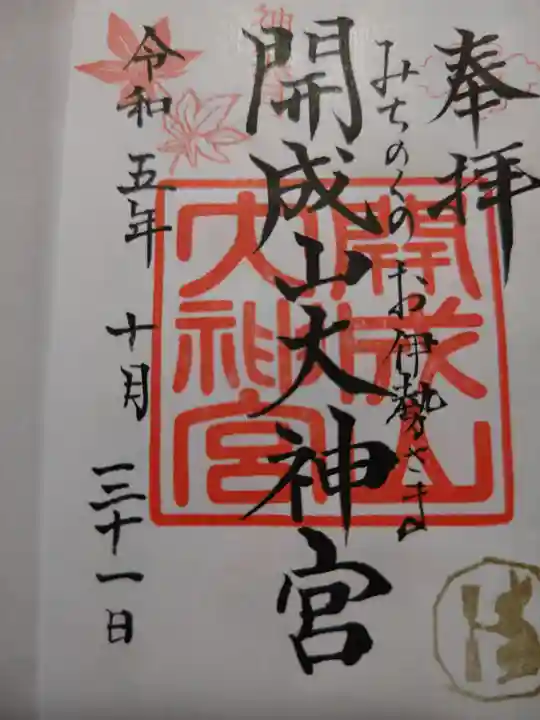 奉拝
みちのくのお伊勢さま
開成山大神宮
令和五年十月三十一日
開成山
大神宮